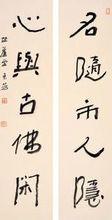 名隨市人隱
心與古佛閑